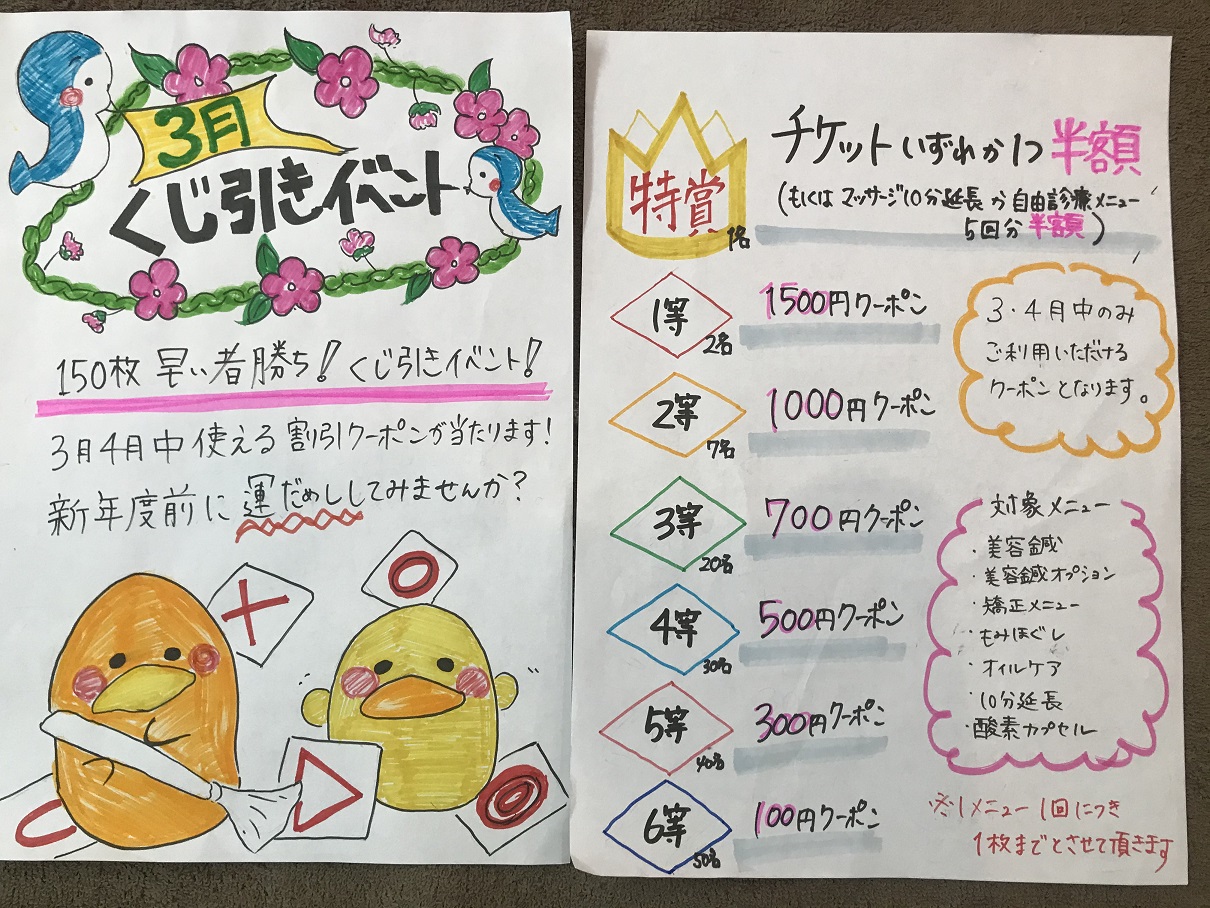 3月
くじ引きイベント
150枚 早い者勝ち! くじ引きイベント!
3月4月中 使える 割引クーポンが当たります!
新年度前に 運だめししてみませんか?
特賞
1名
チケットいずれか1つ 半額
(もしくは マッサージ10分延長 か 自由診療メニュー
5回分 半額)
1等
2名
1500円クーポン
2等
7名
1000円クーポン
3等
20名
700円クーポン
4等
30名
500円クーポン
5等
40名
300円クーポン
6等
50名
100円クーポン
3・4月中のみ
ご利用いただける
クーポンとなります。
対象メニュー
・美容鍼
・美容鍼オプション
・矯正メニュー
・もみほぐし
・オイルケア
・10分延長
・酸素カプセル
※1メニュー1回につき
1枚までとさせて頂きます